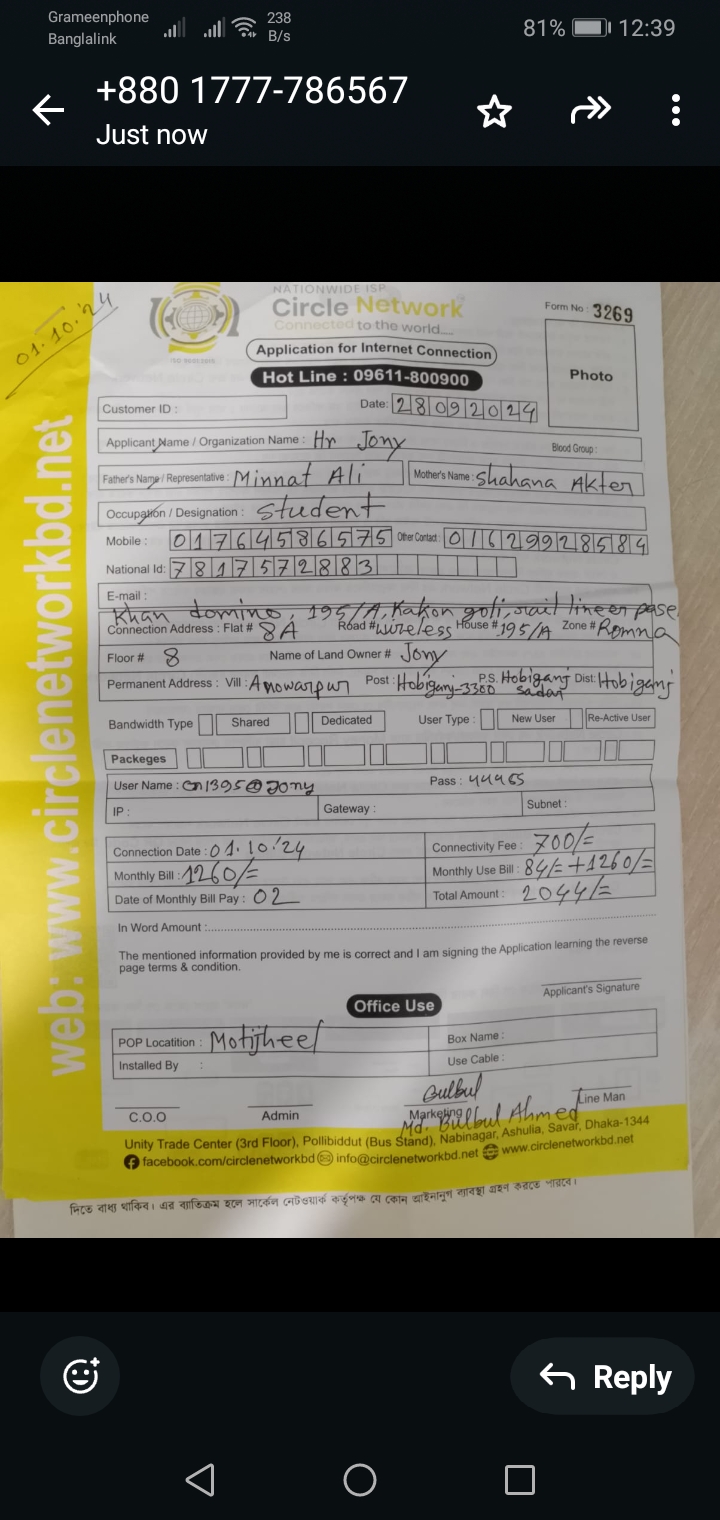 Grameenphone
Banglalink
238 B/s
81% 12:39
+880 1777-786567
Just now
01.10.'24
NATIONWIDE ISP
Circle Network
Connected to the world
Form No : 3269
Application for Internet Connection
Hot Line : 09611-800900
Photo
Customer ID :
Date: 28092024
Applicant Name / Organization Name : Hr Jony Blood Group :
Father's Name / Representative : Minnat Ali Mother's Name : Shahana Akter
Occupation / Designation : Student
Mobile : 01764586575 Other Contact : 01629928584
National Id: 7817572883
E-mail :
Khan domino, 195/A, Kakon goli,
Connection Address : Flat # 8A Road # wireless House # 195/A Zone # Romna
Floor # 8 Name of Land Owner # Jony
Permanent Address : Vill : Anowarpur Post : Hobiganj-3300 P.S. Hobiganj sadar Dist: Hobiganj
Bandwidth Type Shared Dedicated User Type : New User Re-Active User
Packeges
User Name : cn1395@Jony Pass : 44465
IP : Gateway : Subnet :
Connection Date : 01.10.'24 Connectivity Fee : 700/=
Monthly Bill : 1260/= Monthly Use Bill : 84/= +1260/=
Date of Monthly Bill Pay : 02 Total Amount : 2044/=
In Word Amount :
The mentioned information provided by me is correct and I am signing the Application learning the reverse
page terms & condition.
Applicant's Signature
Office Use
POP Locatition : Motijheel Box Name :
Installed By : Use Cable :
Bulbul
C.O.O Admin Marketing Line Man
Md. Bulbul Ahmed
Unity Trade Center (3rd Floor), Pollibiddut (Bus Stand), Nabinagar, Ashulia, Savar, Dhaka-1344
facebook.com/circlenetworkbd info@circlenetworkbd.net www.circlenetworkbd.net
দিতে বাধ্য থাকিব। এর ব্যতিক্রম হলে সার্কেল নেটওয়ার্ক কর্তৃপক্ষ যে কোন আইনানুগ ব্যবস্থা গ্রহণ করতে পারবে।
web: www.circlenetworkbd.net
Reply